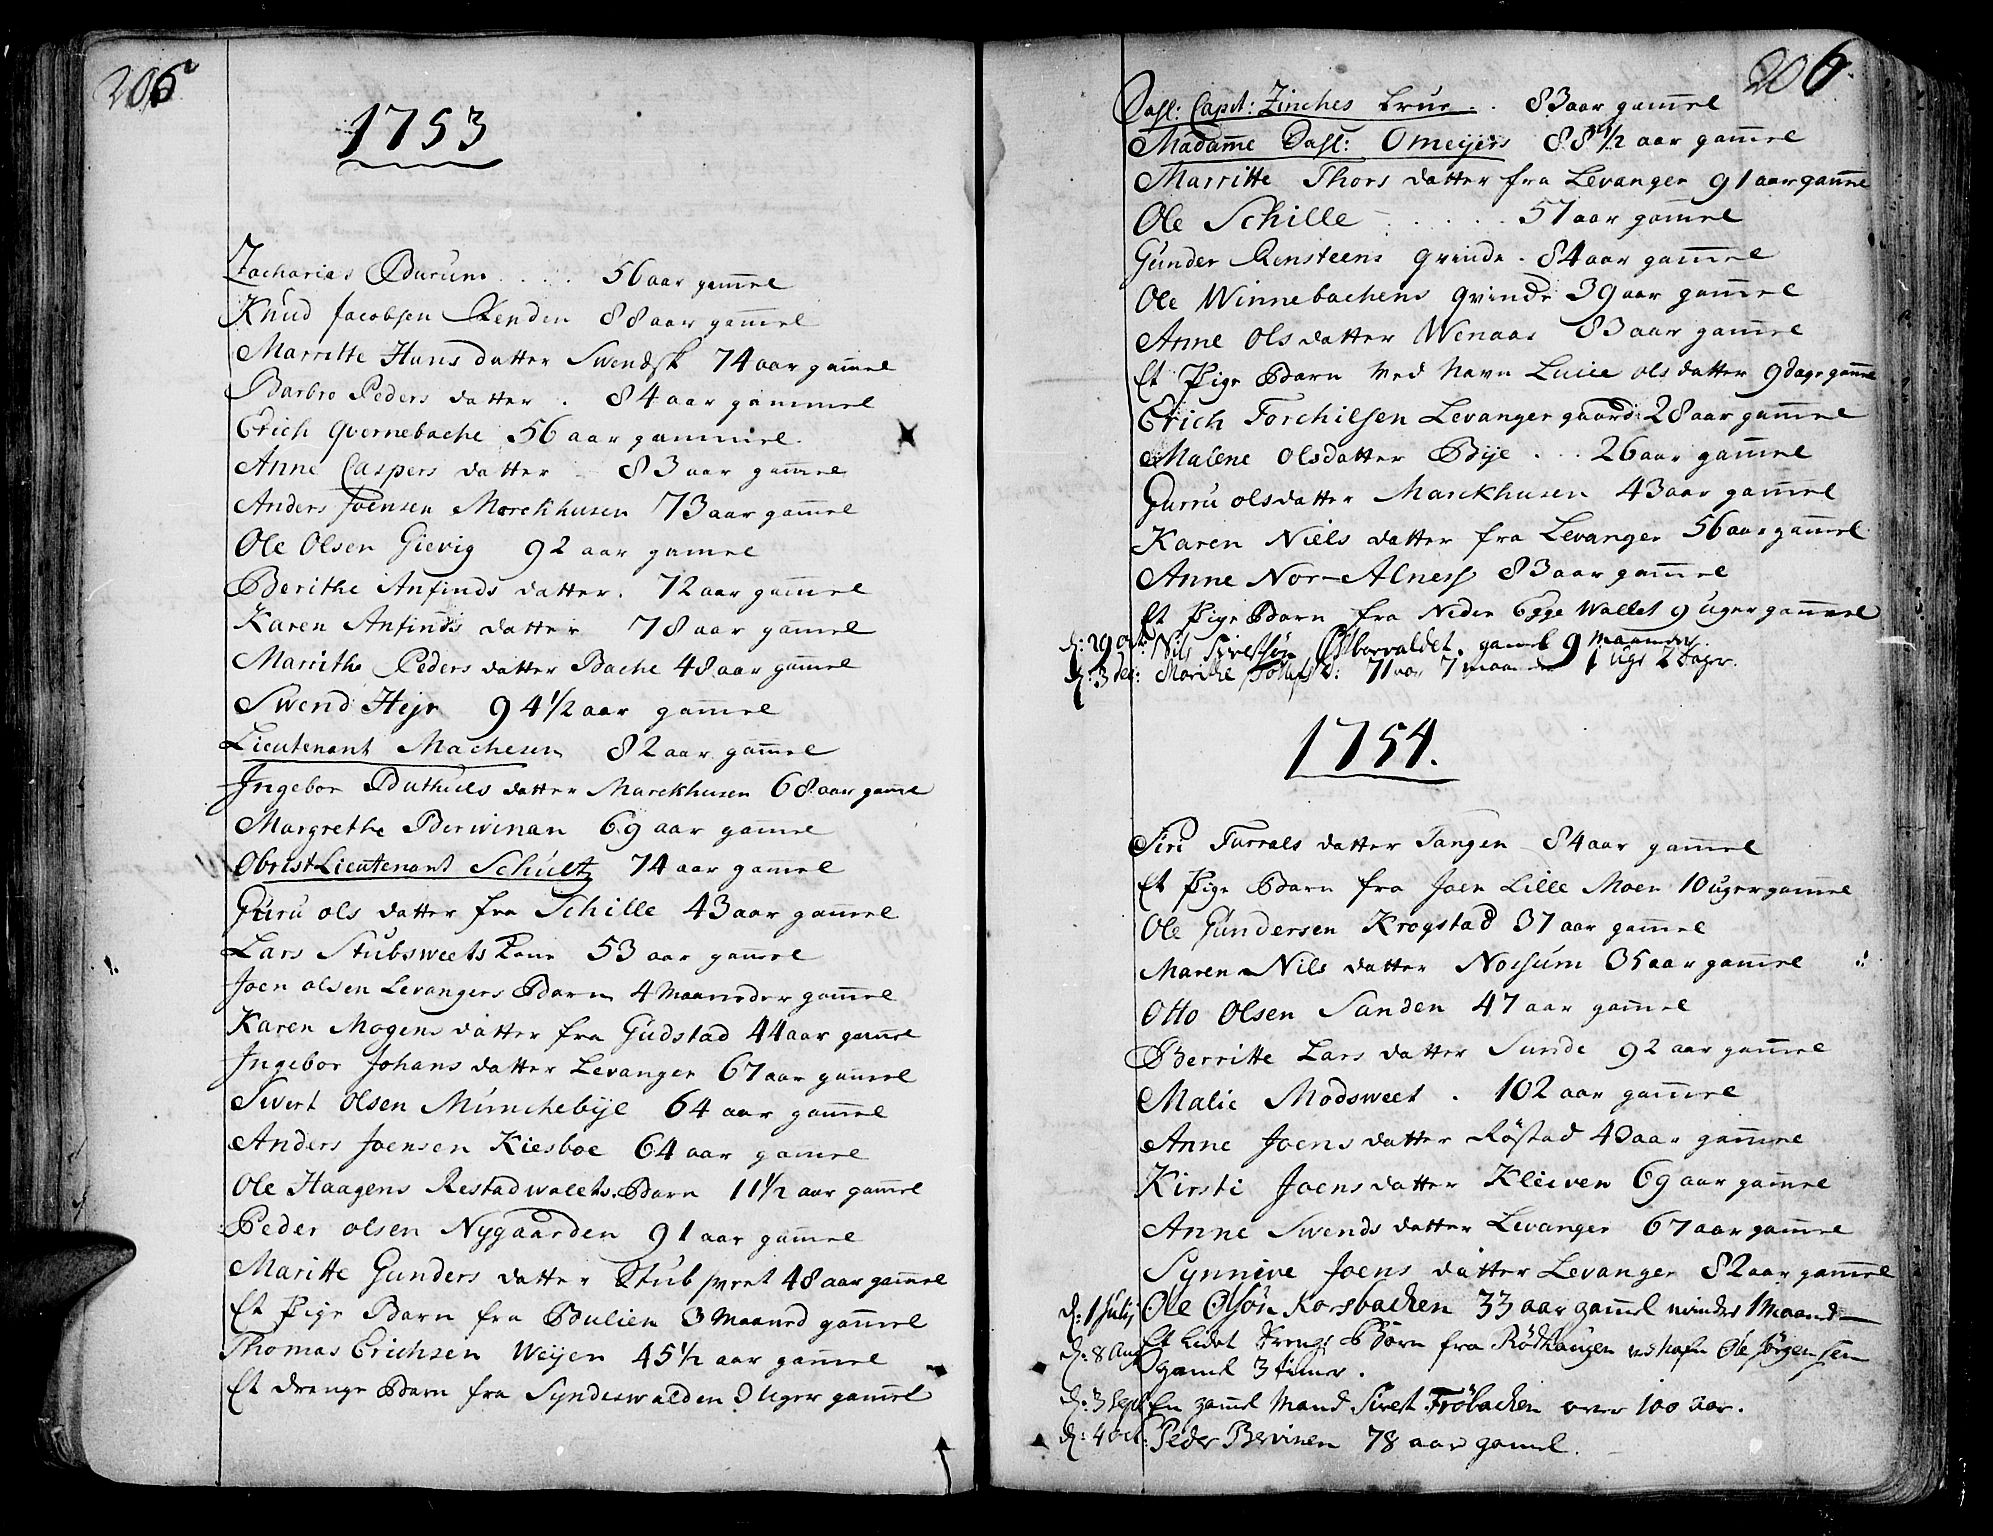 205
1753
Zacharias Burum 56 aar gam̄el
Knud Jacobsen Renden 88 aar gam̄el
Marritte Hans datter Swendsk 74 aar gam̄el
Barbro Peders datter . 84 aar gammel
Erich Qvernebache 56 aar gammel.
Anne Caspers datter 83 aar gam̄el
Anders Joensen Morckhusen 73 aar gam̄el
Ole Olsen Gievig 92 aar gam̄el
Berithe Anfinds datter. 72 aar gam̄el
Karen Anfinds datter 78 aar gam̄el
Marrithe Peders datter Bache 48 aar gam̄el
Swend Heje 94 1/2 aar gam̄el
Lieutenant Machesen 82 aar gam̄el
Ingebor Buthuels datter Marckhusen 68 aar gam̄el
Margrethe Berwinan 69 aar gam̄el
Obrist Lieutenant Schultz 74 aar gam̄el
Guru ols datter fra Schille 43 aar gam̄el
Lars Stubsweets Kone 53 aar gam̄el
Joen olsen Levangers Barn 4 Maaneder gam̄el
Karen Mogens datter fra Gudstad 44 aar gam̄el
Ingebor Johans datter Levanger 67 aar gam̄el
Swert Olsen Münchebÿe 64 aar gam̄el
Anders Joensen Kiesboe 64 aar gam̄el
Ole Haagens Restadwalets Barn 11 1/2 aar gam̄el
Peder olsen Nygaarden 91 aar gam̄el
Maritte Gunders datter Stubsveet 48 aar gam̄el
Et Pige Barn fra Bulien 3 Maaned gam̄el
Thomas Erichsen Weÿen 45 1/2 aar gam̄el
Et drenge Barn fra Syndeswalden 3 Uger gam̄el
206.
Sahl: Capit: Zinches Frue . . 83 aar gam̄el
Madam̄e Sahl: Omeyers 88 1/2 aar gam̄el
Marritte Thors datter fra Levanger 91 aar gam̄el
Ole Schille - . . . . . 57 aar gam̄el
Gunder Rensteens qvinde . 84 aar gam̄el
Ole Winnebachens qvinde 39 aar gam̄el
Anne Ols datter Wenaas 83 aar gam̄el
Et Pige Barn ved Navn Lucie ols datter 9 dage gam̄el
Erich Torchilsen Levanger gaard 28 aar gam̄el
Malene Olsdatter Bÿe . . . 26 aar gam̄el
Gurru olsdatter Marckhusen 43 aar gam̄el
Karen Niels datter fra Levanger 56 aar gam̄el
Anne Nor-Alness 83 aar gam̄el
Et Pige Barn fra Neder Egge Wallet 9 Uger gam̄el
Nils Sivertsøn gamel 9 Maaneder.
d: 3 dec: Marithe 71 aar 7 maaneder 1 Uge 2 Dage.
1754.
Siri Turrals datter Tangen 84 aar gam̄el
Et Pige Barn fra Joen Lille Moen 10 uger gam̄el
Ole Gundersen Krogstad 37 aar gam̄el
Maren Nils datter Nossum 35 aar gam̄el
Otto Olsen Sanden 47 aar gam̄el
Berritte Lars datter Sunde 92 aar gam̄el
Malie Modsweet . 102 aar gam̄el
Anne Joens datter Røstad 43 aar gam̄el
Kirsti Joens datter Kleiven 69 aar gam̄el
Anne Swends datter Levanger 67 aar gam̄el
Synneve Joens datter Levanger 82 aar gam̄el
d: 1 Julij Ole Olsøn Korsbacken 33 aar gam̄el mindre 1 Maand
d: 8 Aug Et Lidet Drenge Barn fra Rødhaugen ved Nafn Ole Jørgensen
gamel 3 timer.
d: 3 Sept En gam̄el Mand Sivert Frøbacken over 100 aar.
d: 4 oct: Peder Bervinen 78 aar gamel.